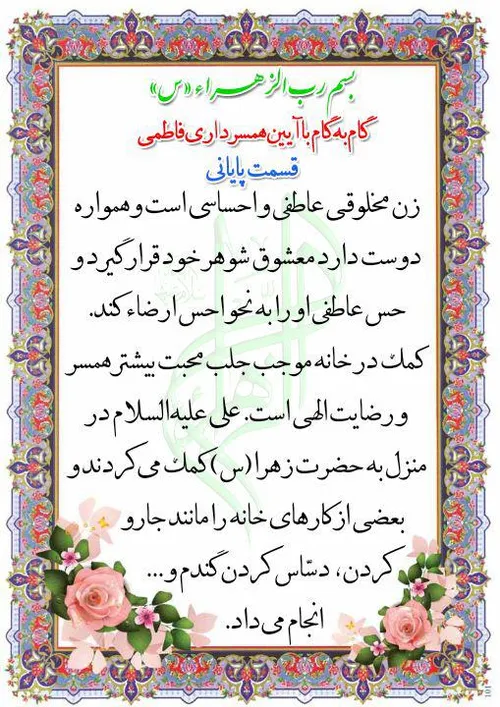 بسم رب الزهراء «س»
گام به گام با آیین همسرداری فاطمی
قسمت پایانی
زن مخلوقی عاطفی و احساسی است و همواره
دوست دارد معشوق شوهر خود قرار گیرد و
حس عاطفی او را به نحو احسن ارضاء کند.
کمک در خانه موجب جلب محبت بیشتر همسر
و رضایت الهی است. علی علیه السلام در
منزل به حضرت زهرا (س) کمک می کردند و
بعضی از کارهای خانه را مانند جارو
کردن، دسّاس کردن گندم و...
انجام می داد.